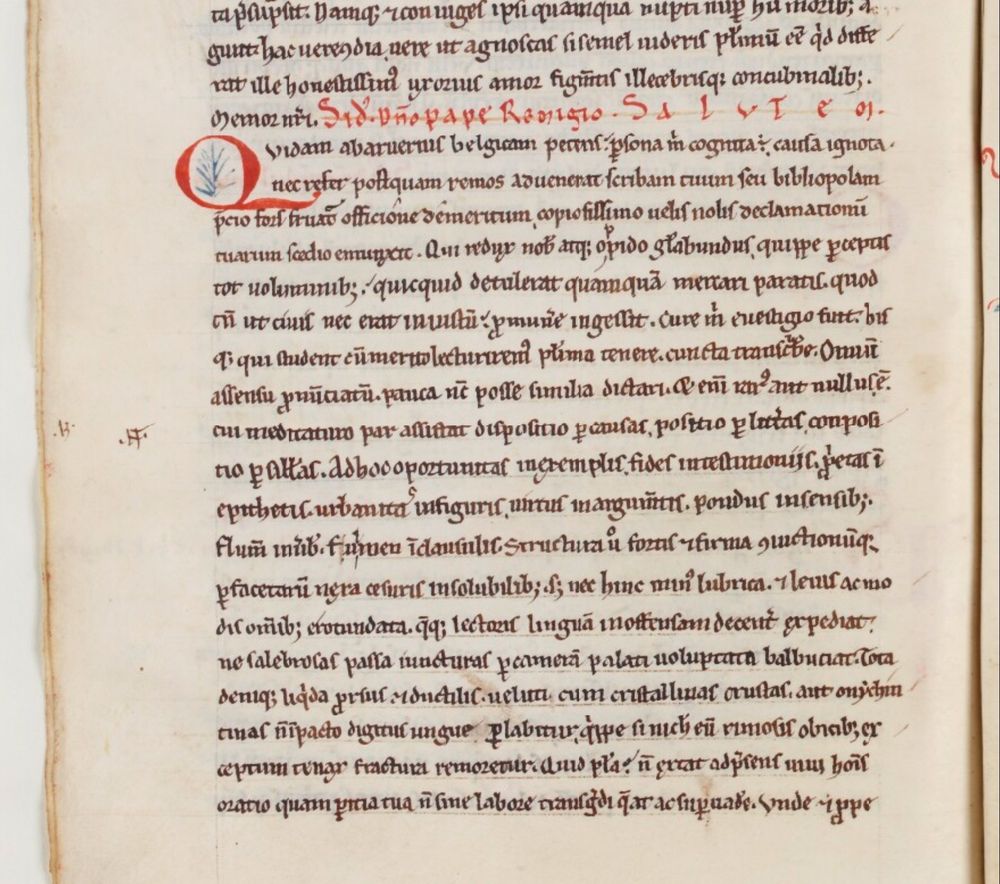 ta p̄sūpsit. Namq; ⁊ coniuges ipsi quamqua nupti nup̄ his morib; a
gunt. hac uerendia uere ut agnoscas si semel uideris pl̄imū eē q̄d diffe
rat ille honestissim⁹ uxorius amor figm̄tis illecebrisq; concubinalib;.
Memor nr̄i. Sid⁹. dn̄o pape Remigio. Salutem.
Quidam ab aruernis belgicam petens. p̱sona m̄ cognita ē. causa ignota.
nec refert postquam remos aduenerat scribam tuum seu bibliopolam
p̄cio fors fruat̄ officione demeritum copiosissimo uelis nolis declamationū
tuarum scedio emunxit. Qui redux nob̄ atq; oppido gl̄abundus, quippe p̱ceptis
tot uoluminib;. quicquid detulerat quamquā mercari paratis. quod
cū ut ciuis nec erat iniustū. p̱ munere ingessit. Cure m̄ euestigio fuit. his
q; qui student cū merito lecturirem⁹ pl̄ima tenere. cuncta transcͥbe. Omniū
assensu p̱nūciatū. pauca nc̄ posse similia dictari. & em̄ rar⁹ aut nullus ē.
cui meditaturo par assistat dispositio p̱ causas, positio p̱ litt̄as, composi
tio p̱ sill̄as. Ad hoc oportunitas in exemplis, fides in testimoniis. p̱etas ī
epithetis. urbanitas in figuris, uirtus in argum̄tis. pondus in sensib;.
flum̄ in ūb̄. fulmen ī clausulis. Structura ů fortis ⁊ firma ꝯiuctionūq;
p̱facetarū nexa cesuris insolubilib; s; nec hinc min⁹ lubrica. ⁊ leuis ac mo
dis om̄ib; erotundata. q̄q; lectoris linguā inoffensam decent̄ expediat.
ne salebrosas passa iuncturas p̱ camerā palati uolutata balbuciat. Tota
deniq; liq̄da p̱rsus ⁊ ductilis. ueluti cum cristallinas crustas. aut onychin
tinas n̄ īpacto digitus ungue p̱labitur, q̄ppe si nich̄ eū rimosis obicib; ex
ceptum tenax fractura remoretur. Quid pl̄a? n̄ extat ad p̄sens uiui hoīs
oratio quam p̱itia tua n̄ sine labore transḡdi q̄at ac sup̱uade. Vnde ⁊ p̱pe